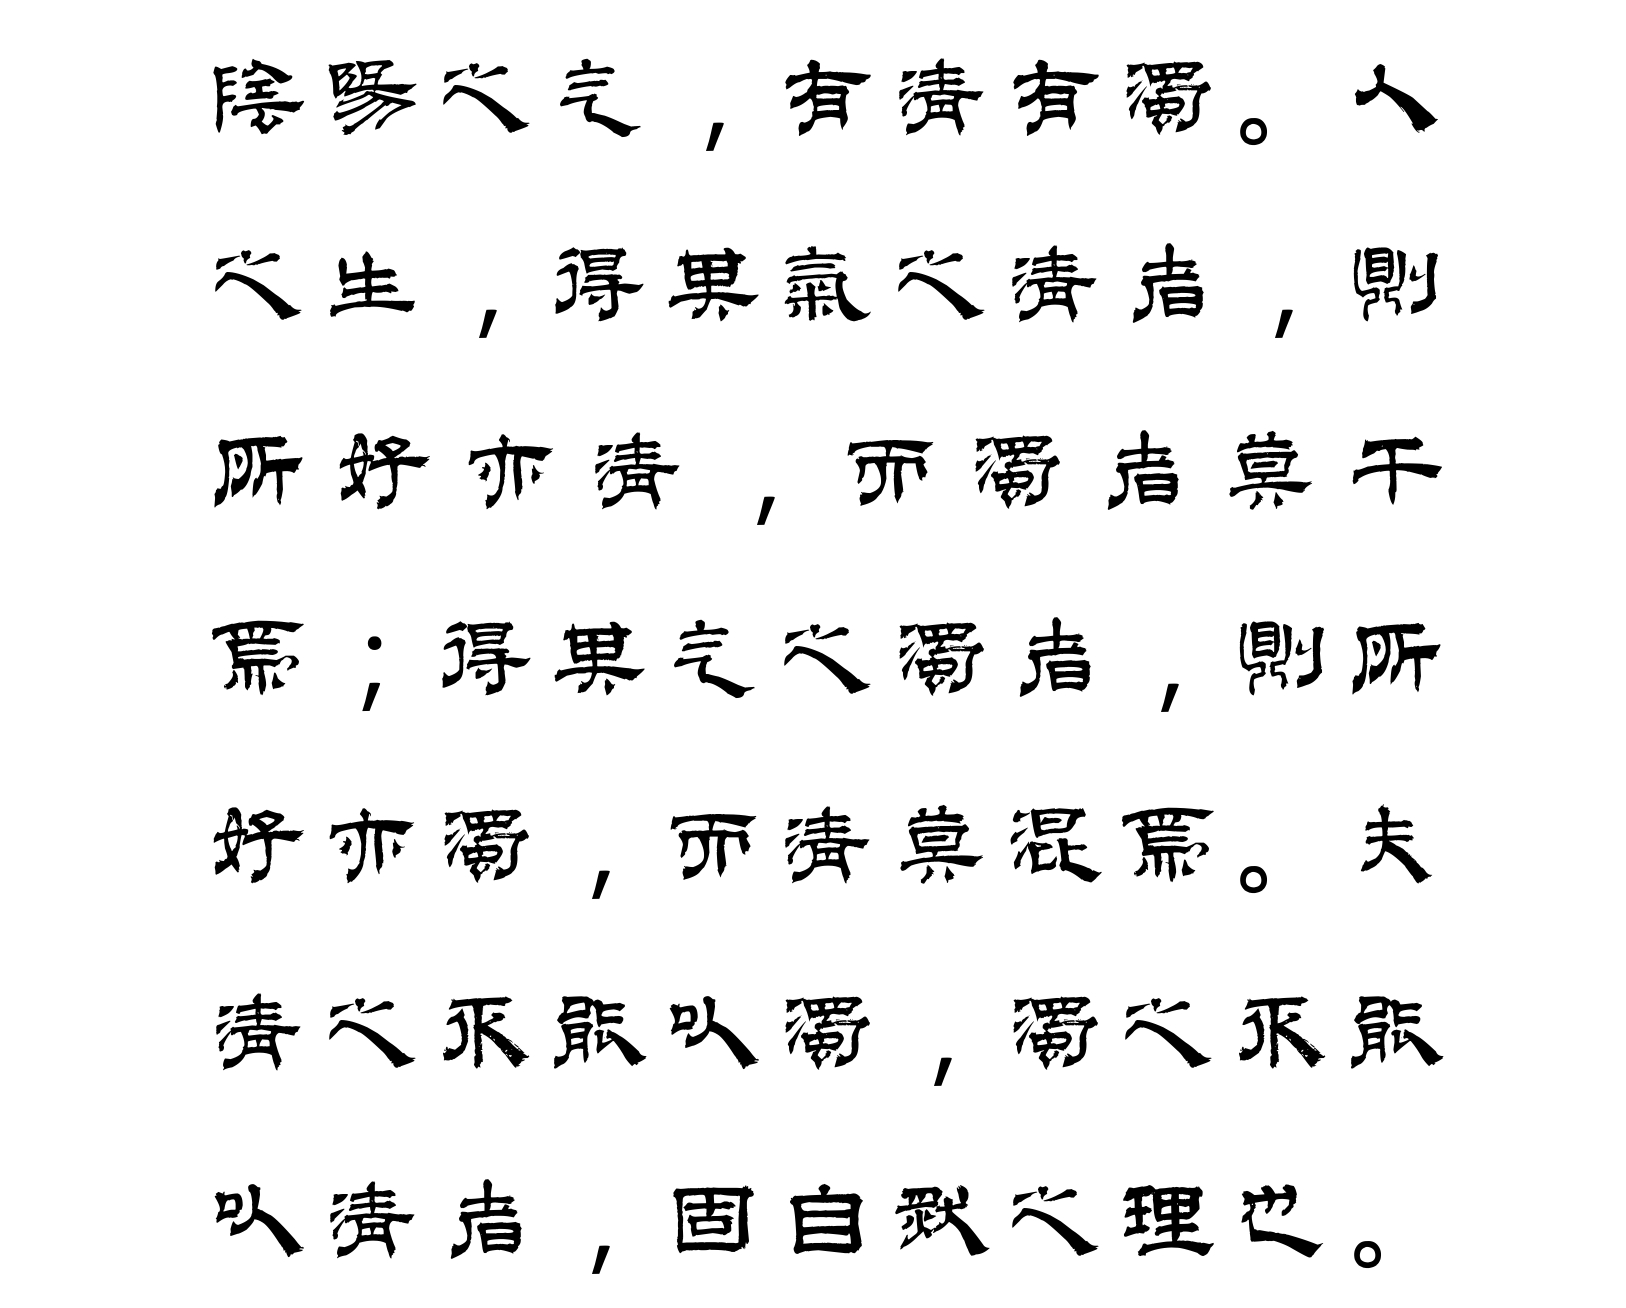 陰陽之气，有清有濁。人
之生，得其氣之清者，則
所好亦清，而濁者莫干
焉；得其气之濁者，則所
好亦濁，而清莫混焉。夫
清之不能以濁，濁之不能
以清者，固自然之理也。